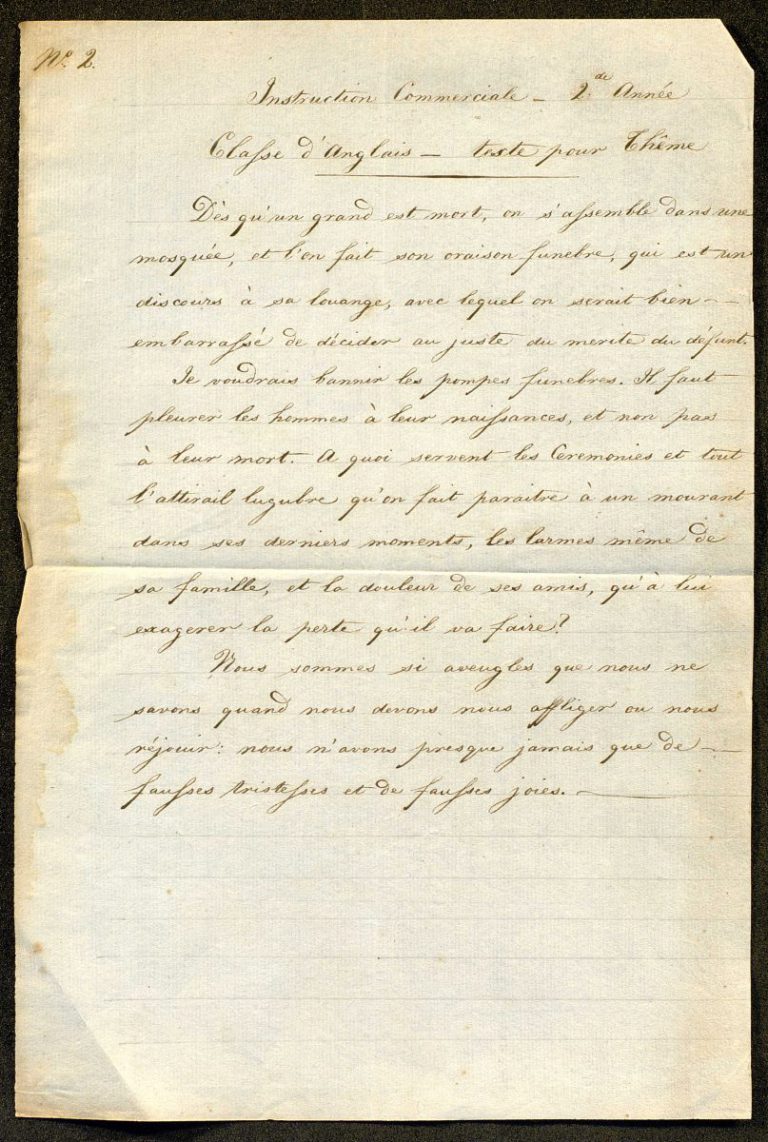 N.° 2.
Instruction Commerciale - 2.de Année
Classe d'Anglais - texte pour Thême
Dès qu'un grand est mort, on s'assemble dans une
mosquée, et l'on fait son oraison funebre, qui est un
discours à sa louange, avec lequel on serait bien -
embarrassé de décider au juste du merite du défunt.
Je voudrais bannir les pompes funebres. Il faut
pleurer les hommes à leur naissances, et non pas
à leur mort. A quoi servent les Ceremonies et tout
l'attirail lugubre qu'on fait paraitre à un mourant
dans ses derniers moments, les larmes même de
sa famille, et la douleur de ses amis, qu'à lui
exagerer la perte qu'il va faire?
Nous sommes si aveugles que nous ne
savons quand nous devons nous affliger ou nous
réjouir: nous n'avons presque jamais que de -
fausses tristesses et de fausses joies. -